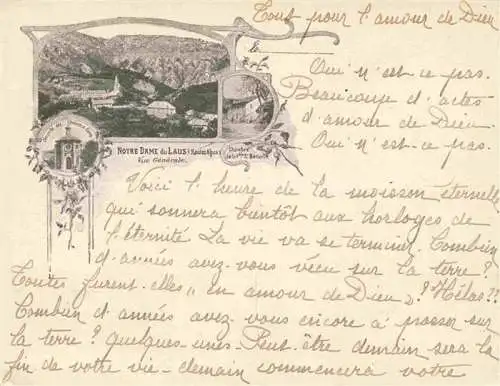 Tout pour l'amour de Dieu
Oui n'est ce pas.
Beaucoup d'actes
d'amour de Dieu.
Oui n'est ce pas.
NOTRE DAME DU LAUS (Hautes Alpes)
Vue Générale.
Chambre
Voici l'heure de la moisson éternelle
qui sonnera bientôt aux horloges de
l'éternité La vie va se terminer. Combien
d'années avez-vous vécu sur la terre?
Toutes furent-elles „ en amour de Dieu „? Hélas!!
Combien d'années avez-vous encore à passer sur
la terre? quelques-unes – Peut-être demain sera la
fin de votre vie – demain commencera votre